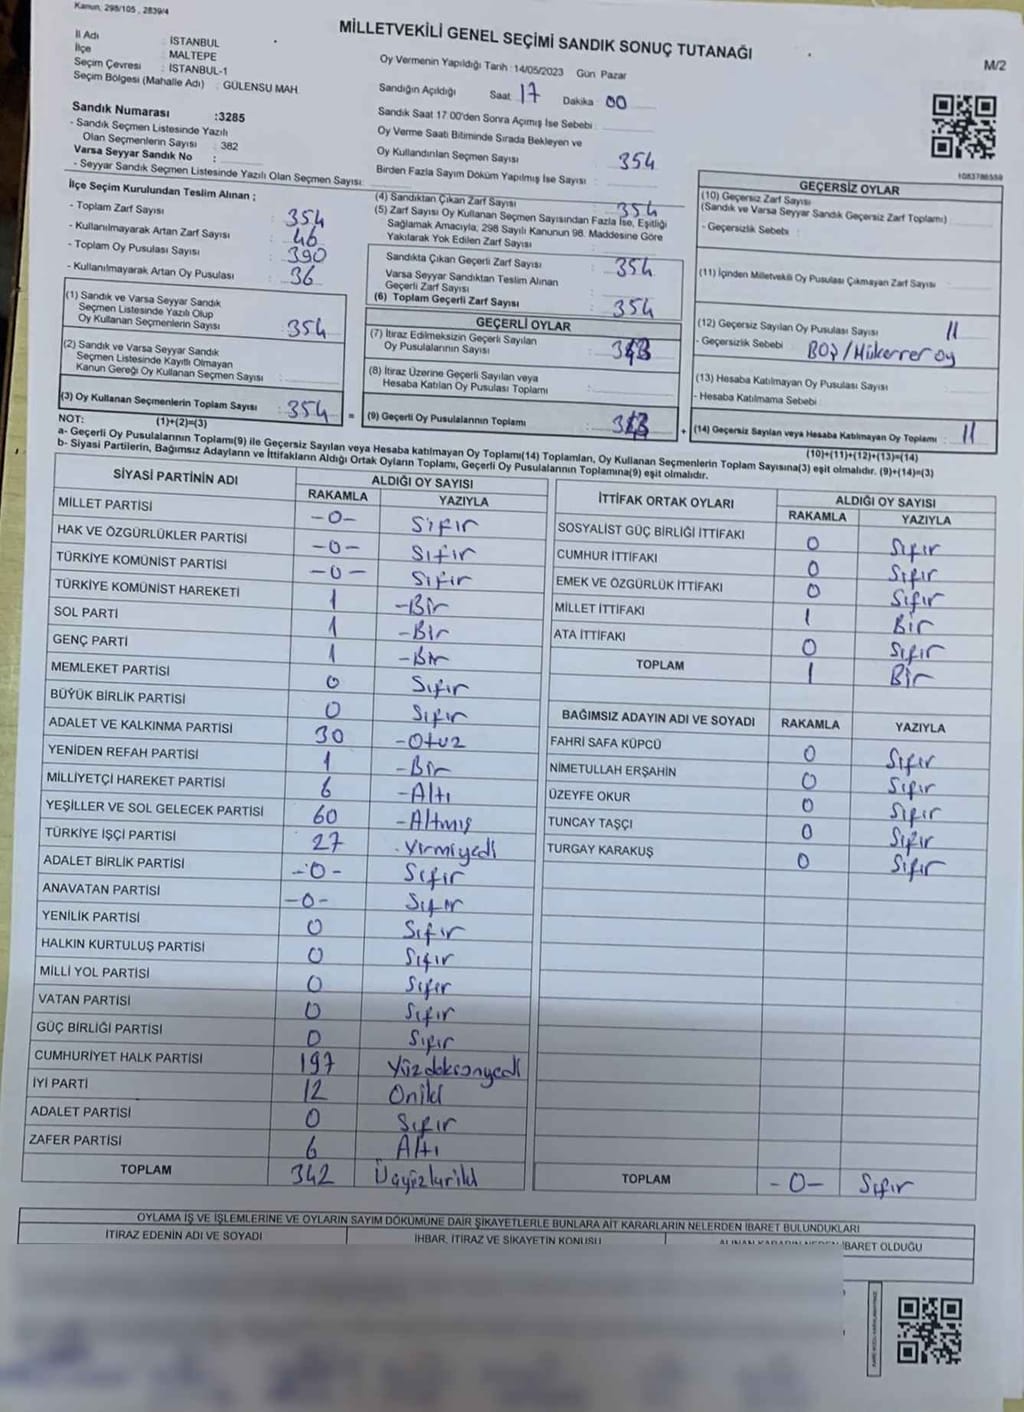 Kanun, 298/105 , 2839/4
MİLLETVEKİLİ GENEL SEÇİMİ SANDIK SONUÇ TUTANAĞI
M/2
İl Adı : İSTANBUL
İlçe : MALTEPE
Seçim Çevresi : İSTANBUL-1
Seçim Bölgesi (Mahalle Adı) : GÜLENSU MAH.
Oy Vermenin Yapıldığı Tarih :14/05/2023 Gün Pazar
Sandığın Açıldığı Saat 17 Dakika 00
Sandık Numarası :3285
- Sandık Seçmen Listesinde Yazılı
Olan Seçmenlerin Sayısı : 382
Varsa Seyyar Sandık No :
- Seyyar Sandık Seçmen Listesinde Yazılı Olan Seçmen Sayısı:
Sandık Saat 17:00'den Sonra Açılmış İse Sebebi :
Oy Verme Saati Bitiminde Sırada Bekleyen ve
Oy Kullandırılan Seçmen Sayısı : 354
Birden Fazla Sayım Döküm Yapılmış İse Sayısı :
1083786559
İlçe Seçim Kurulundan Teslim Alınan ;
- Toplam Zarf Sayısı : 354
- Kullanılmayarak Artan Zarf Sayısı : 46
- Toplam Oy Pusulası Sayısı : 390
- Kullanılmayarak Artan Oy Pusulası : 36
(1) Sandık ve Varsa Seyyar Sandık
Seçmen Listesinde Yazılı Olup
Oy Kullanan Seçmenlerin Sayısı : 354
(2) Sandık ve Varsa Seyyar Sandık
Seçmen Listesinde Kayıtlı Olmayan
Kanun Gereği Oy Kullanan Seçmen Sayısı :
(3) Oy Kullanan Seçmenlerin Toplam Sayısı : 354 =
(1)+(2)=(3)
(4) Sandıktan Çıkan Zarf Sayısı : 354
(5) Zarf Sayısı Oy Kullanan Seçmen Sayısından Fazla İse, Eşitliği
Sağlamak Amacıyla, 298 Sayılı Kanunun 98. Maddesine Göre
Yakılarak Yok Edilen Zarf Sayısı :
Sandıkta Çıkan Geçerli Zarf Sayısı : 354
Varsa Seyyar Sandıktan Teslim Alınan
Geçerli Zarf Sayısı :
(6) Toplam Geçerli Zarf Sayısı : 354
GEÇERLİ OYLAR
(7) İtiraz Edilmeksizin Geçerli Sayılan
Oy Pusulalarının Sayısı :
(8) İtiraz Üzerine Geçerli Sayılan veya
Hesaba Katılan Oy Pusulası Toplamı :
(9) Geçerli Oy Pusulalarının Toplamı : +
GEÇERSİZ OYLAR
(10) Geçersiz Zarf Sayısı
(Sandık ve Varsa Seyyar Sandık Geçersiz Zarf Toplamı) :
- Geçersizlik Sebebi :
(11) İçinden Milletvekili Oy Pusulası Çıkmayan Zarf Sayısı :
(12) Geçersiz Sayılan Oy Pusulası Sayısı : 11
- Geçersizlik Sebebi : BOŞ/Mükerrer oy
(13) Hesaba Katılmayan Oy Pusulası Sayısı :
- Hesaba Katılmama Sebebi :
(14) Geçersiz Sayılan veya Hesaba Katılmayan Oy Toplamı : 11
(10)+(11)+(12)+(13)=(14)
NOT:
a- Geçerli Oy Pusulalarının Toplamı(9) ile Geçersiz Sayılan veya Hesaba katılmayan Oy Toplamı(14) Toplamları, Oy Kullanan Seçmenlerin Toplam Sayısına(3) eşit olmalıdır. (9)+(14)=(3)
b- Siyasi Partilerin, Bağımsız Adayların ve İttifakların Aldığı Ortak Oyların Toplamı, Geçerli Oy Pusulalarının Toplamına(9) eşit olmalıdır.
SİYASİ PARTİNİN ADI ALDIĞI OY SAYISI
RAKAMLA YAZIYLA
MİLLET PARTİSİ -0- Sıfır
HAK VE ÖZGÜRLÜKLER PARTİSİ -0- Sıfır
TÜRKİYE KOMÜNİST PARTİSİ -0- Sıfır
TÜRKİYE KOMÜNİST HAREKETİ 1 -Bir
SOL PARTİ 1 -Bir
GENÇ PARTİ 1 -Bir
MEMLEKET PARTİSİ 0 Sıfır
BÜYÜK BİRLİK PARTİSİ 0 Sıfır
ADALET VE KALKINMA PARTİSİ 30 -Otuz
YENİDEN REFAH PARTİSİ 1 -Bir
MİLLİYETÇİ HAREKET PARTİSİ 6 -Altı
YEŞİLLER VE SOL GELECEK PARTİSİ 60 -Altmış
TÜRKİYE İŞÇİ PARTİSİ 27 -Yirmiyedi
ADALET BİRLİK PARTİSİ -0- Sıfır
ANAVATAN PARTİSİ -0- Sıfır
YENİLİK PARTİSİ 0 Sıfır
HALKIN KURTULUŞ PARTİSİ 0 Sıfır
MİLLİ YOL PARTİSİ 0 Sıfır
VATAN PARTİSİ 0 Sıfır
GÜÇ BİRLİĞİ PARTİSİ 0 Sıfır
CUMHURİYET HALK PARTİSİ 197 Yüzdoksanyedi
İYİ PARTİ 12 Oniki
ADALET PARTİSİ 0 Sıfır
ZAFER PARTİSİ 6 Altı
TOPLAM 342
İTTİFAK ORTAK OYLARI ALDIĞI OY SAYISI
RAKAMLA YAZIYLA
SOSYALİST GÜÇ BİRLİĞİ İTTİFAKI 0 Sıfır
CUMHUR İTTİFAKI 0 Sıfır
EMEK VE ÖZGÜRLÜK İTTİFAKI 0 Sıfır
MİLLET İTTİFAKI 1 Bir
ATA İTTİFAKI 0 Sıfır
TOPLAM 1 Bir
BAĞIMSIZ ADAYIN ADI VE SOYADI RAKAMLA YAZIYLA
FAHRİ SAFA KÜPCÜ 0 Sıfır
NİMETULLAH ERŞAHİN 0 Sıfır
ÜZEYFE OKUR 0 Sıfır
TUNCAY TAŞÇI 0 Sıfır
TURGAY KARAKUŞ 0 Sıfır
TOPLAM -0- Sıfır
OYLAMA İŞ VE İŞLEMLERİNE VE OYLARIN SAYIM DÖKÜMÜNE DAİR ŞİKAYETLERLE BUNLARA AİT KARARLARIN NELERDEN İBARET BULUNDUKLARI
İTİRAZ EDENİN ADI VE SOYADI İHBAR, İTİRAZ VE ŞİKAYETİN KONUSU ALINAN KARARIN NEDEN İBARET OLDUĞU